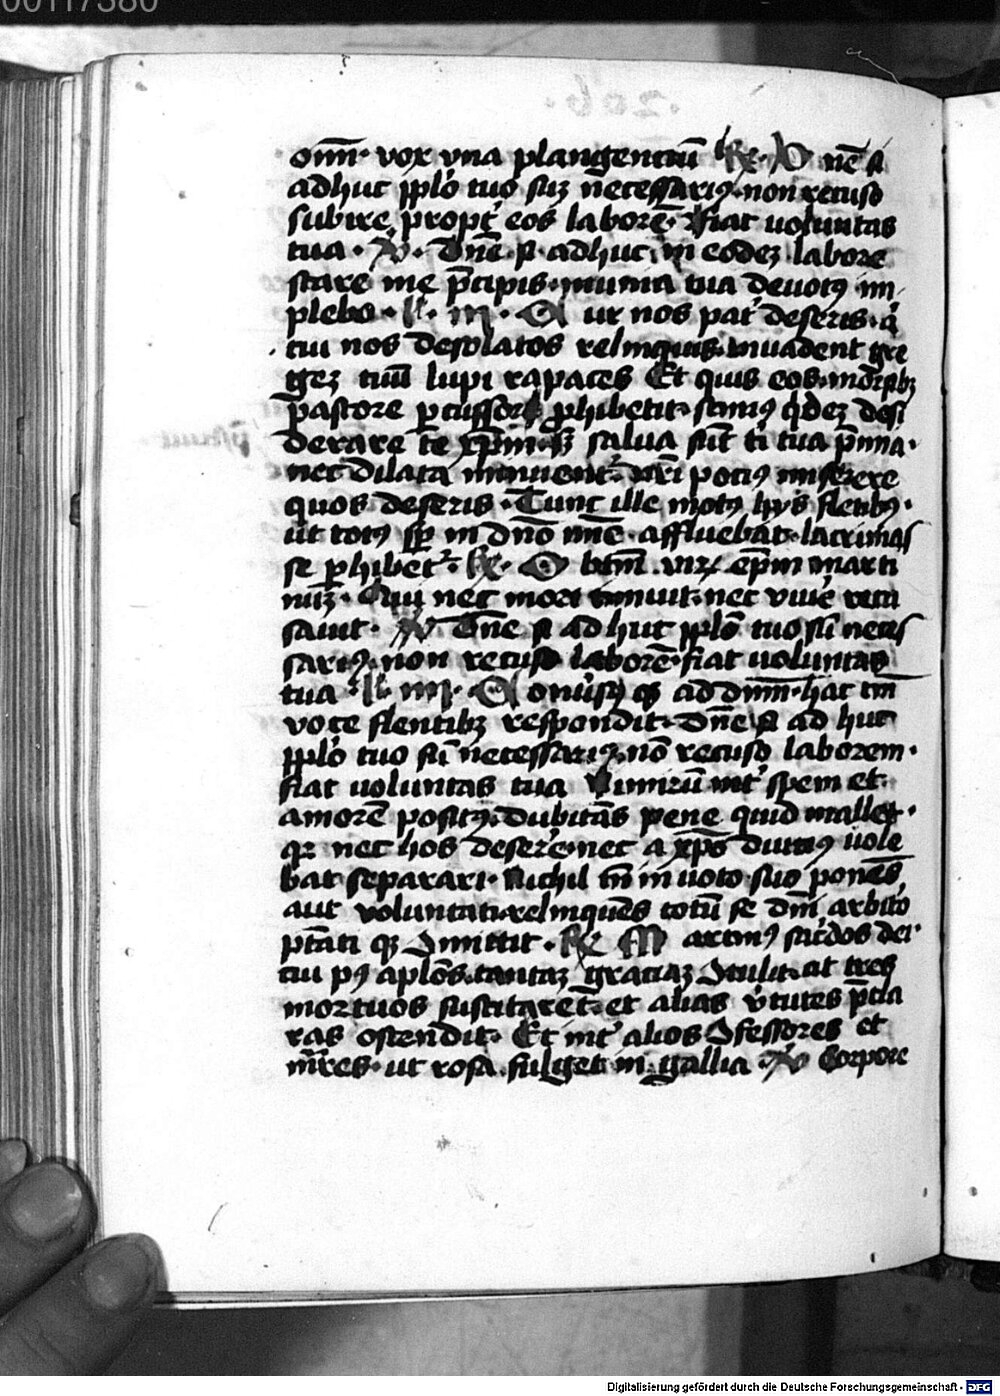 00117380
206.
om̄m· vox vna plangentiū R̷· D nē si
adhuc pplo tuo sūz necessariꝯ· non recuso
subire propt̛ eos laborē· fiat uoluntas
tua · V · Dn̄e si adhuc in eodez labore
stare me p̄cipis· munia tua deuotꝯ im
plebo · l· iii · C ur nos pat̛ deseris· a̛
cui nos desolatos relinquis· inuadent gre
gez tuū lupi rapaces Et quis eos morsibꝫ
pastore percussore phibebit· scimꝯ qdez desi
derare te xp̄m· sꝫ salua sūt ti tua p̄mia·
nec dilata minuent̛· nr̄i potiꝯ miserere
quos deseris · Tunc ille motꝯ hys fletibꝯ·
ut totꝯ sp̄ in dn̄o mīe affluebat· lacrimas
se phibet̛· R̷· O btm̄ virꝫ ep̄m marti
nūz· Qui nec mori timuit· nec viuē recu
sauit· V Dn̄e si ad huc pplō tuo sū neces
sariꝯ· non recuso laborē· fiat uoluntas
tua l· iiii· C onūsꝯ qꝫ ad dn̄m· hac tm̄
voce flentibꝫ respondit· Dn̄e si ad huc
pplo tuo sū necessariꝯ· nō recuso laborem·
fiat uoluntas tua Nimirū int̛ spem et
amorē positꝯ· dubitās pene quid mallet·
qꝛ nec hos deserē· nec a xp̄o diutiꝯ uole
bat separari· Nichil tn̄ in uoto suo ponēs
aut voluntati relinquēs totū se dn̄i arbit̛o
ptāti qꝫ ꝯmittit · R̷ M artinꝯ sac̛dos dei·
cui pꝯ aplōs tantaz graciaz ꝯtulit· ut tres
mortuos suscitaret· et alias v̛tutes p̄cla
ras ostendit· Et int̛ alios ꝯfessores et
mr̄es· ut rosa fulget in gallia · V Corpore
Digitalisierung gefördert durch die Deutsche Forschungsgemeinschaft - DFG